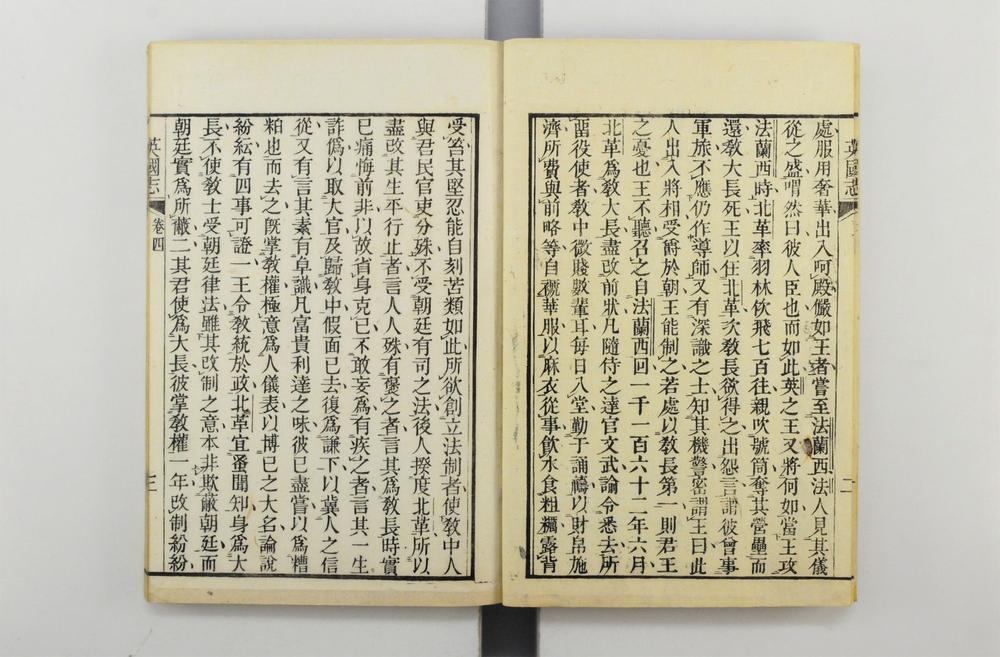 處服用奢華出入呵殿儼如王者嘗至法蘭西法人見其儀
從之盛喟然曰彼人臣也而如此英之王又將何如當王攻
法蘭西時北革率羽林佽飛七百往親吹號筒奪其營壘而
還敎大長死王以任北革次敎長欲得之出怨言謂彼曾事
軍旅不應仍作導師又有深識之士知其機警密謂王曰此
人出入將相受爵於朝王能制之若處以敎長第一則君王
之憂也王不聽召之自法蘭西回一千一百六十二年六月
北革爲敎大長盡改前狀凡隨侍之達官文武諭令悉去所
畱役使者敎中微賤數輩耳每日入堂勤于誦禱以財帛施
濟所費與前略等自襯華服以麻衣從事飮水食粗糲露背
受笞其堅忍能自刻苦類如此所欲創立法制者使敎中人
與君民官吏分殊不受朝廷有司之法後人揆度北革所以
盡改其生平行止者言人人殊有襃之者言其爲敎長時實
已痛悔前非以故省身克已不敢妄爲有疾之者言其一生
詐僞以取大官及歸敎中假面已去復爲謙下以冀人之信
從又有言其素有卓識凡富貴利達之味彼已盡嘗以爲糟
粕也而去之旣掌敎權極意爲人儀表以博已之大名論說
紛紜有四事可證一王令敎統於政北革宜蚤聞知身爲大
長不使敎士受朝廷律法雖其改制之意本非欺蔽朝廷而
朝廷實爲所蔽二其君使爲大長彼掌敎權一年改制紛紛
英國志
卷四
三
英國志
二